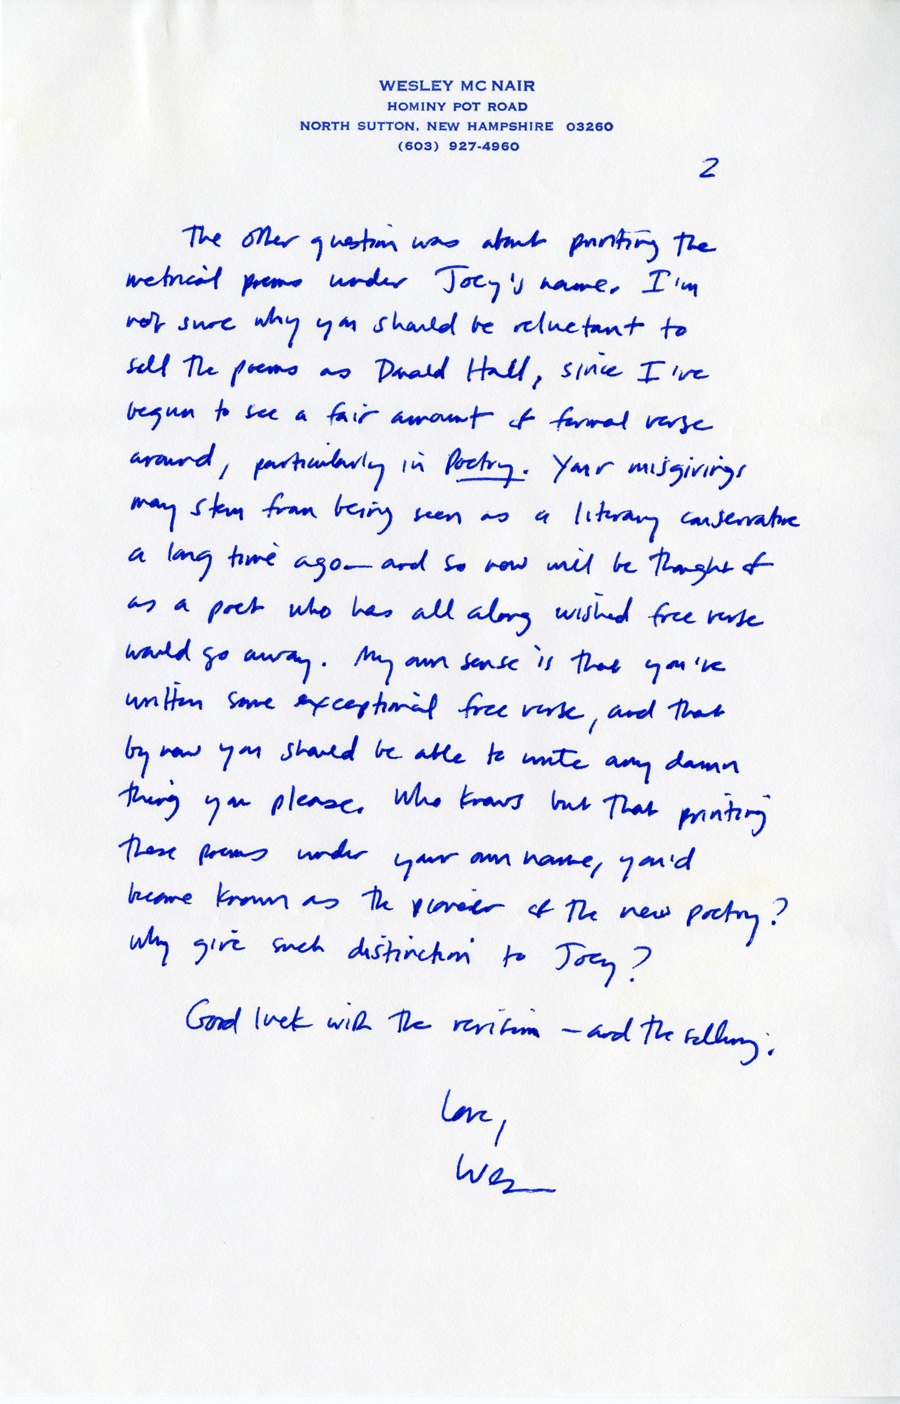 WESLEY MC NAIR
HOMINY POT ROAD
NORTH SUTTON, NEW HAMPSHIRE 03260
(603) 927-4960
2
The other question was about printing the
metrical poems under Joey's name. I'm
not sure why you should be reluctant to
sell the poems as Donald Hall, since I've
begun to see a fair amount of formal verse
around, particularly in Poetry. Your misgivings
may stem from being seen as a literary conservative
a long time ago—and so now will be thought of
as a poet who has all along wished free verse
would go away. My own sense is that you've
written some exceptional free verse, and that
by now you should be able to write any damn
thing you please. Who knows but that printing
these poems under your own name, you'd
become known as the pioneer of the new poetry?
Why give such distinction to Joey?
Good luck with the revision — and the selling.
Love,
Wes